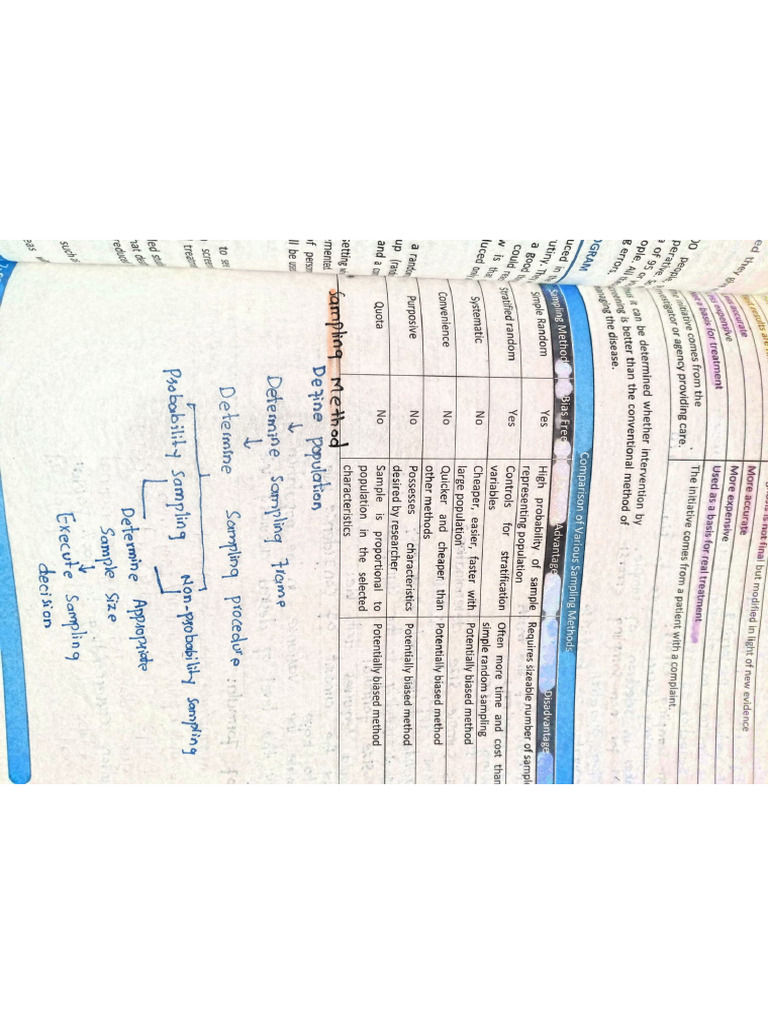 basis is not final but modified in light of new evidence
accurate More accurate
expensive More expensive
basis for treatment Used as a basis for real treatment
initiative comes from the The initiative comes from a patient with a complaint.
investigator or agency providing care.
it can be determined whether intervention by
is better than the conventional method of
managing the disease.
Comparison of Various Sampling Methods
Sampling Method Bias Free Advantage Disadvantage
Simple Random Yes High probability of sample representing population Requires sizeable number of sampl
Stratified random Yes Controls for stratification variables Often more time and cost than simple random sampling
Systematic No Cheaper, easier, faster with large population Potentially biased method
Convenience No Quicker and cheaper than other methods Potentially biased method
Purposive No Possesses characteristics desired by researcher Potentially biased method
Quota No Sample is proportional to population in the selected characteristics Potentially biased method
Sampling Method
Define population
↓
Determine Sampling frame
↓
Determine Sampling procedure
Probability Sampling Non-probability Sampling
Determine Appropriate
Sample Size
↓
Execute Sampling
decision